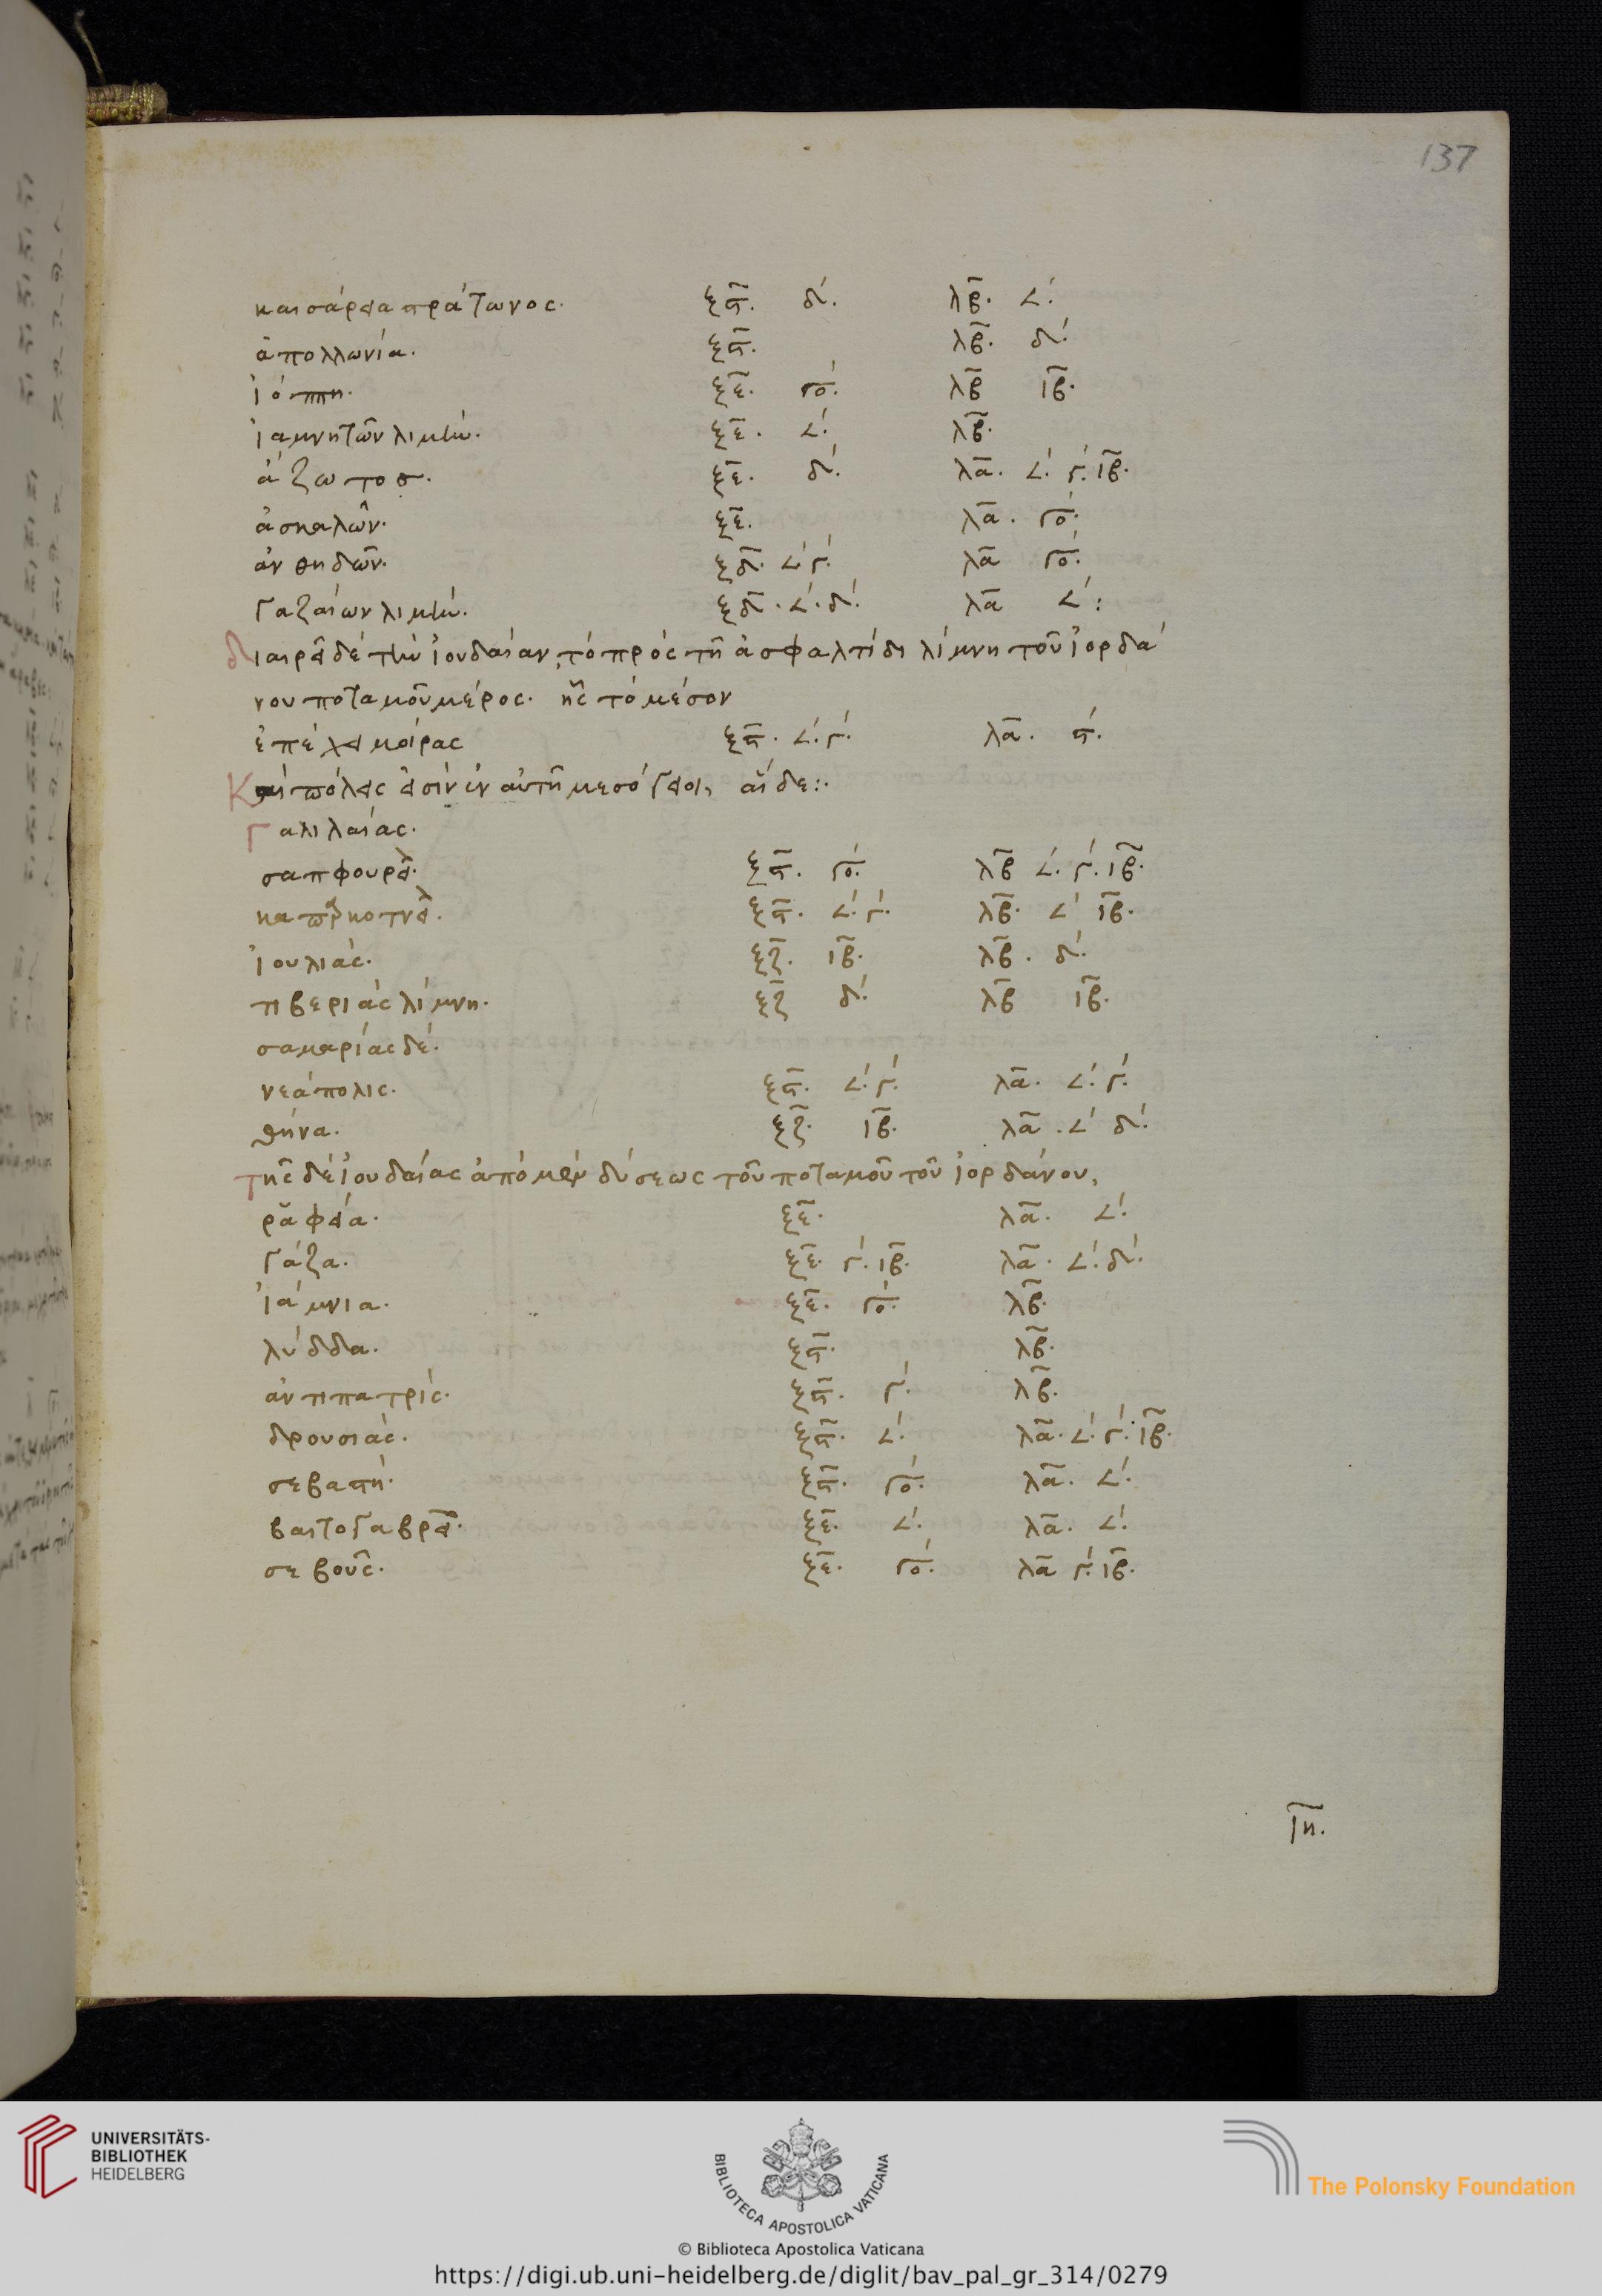 137
καισάρεια στράτωνος. ξϛ̄. δ´. λβ̄. ∠´.
ἀπολλωνία. ξϛ̄. λβ̄. δ´.
ἰόππη. ξε̄. γο´. λβ̄ ιβ̄.
ἰαμνητῶν λιμήν. ξε̄. ∠´. λβ̄.
ἄζωτος. ξε̄. δ´. λᾱ. ∠´. γ´. ιβ̄.
ἀσκαλῶν. ξε̄. λᾱ. γο´.
ἀνθηδῶν. ξδ̄. ∠´ γ´. λᾱ γο´.
γαζαίων λιμήν. ξδ̄. ∠´. δ´. λᾱ ∠´:
διαιρεῖ δὲ τὴν ἰουδαίαν, τὸ πρὸς τῆ ἀσφαλτίδι λίμνη τοῦ ἰορδά
νου ποταμοῦ μέρος. ἧς τὸ μέσον
ἐπέχει μοίρας ξϛ̄. ∠´. γ´. λᾱ. ϛ´.
Καὶ πόλεις εἰσὶν ἐν αὐτῆ μεσόγειοι, αἵδε:.
Γαλιλαίας.
σαπφουρεῖ. ξϛ̄. γο´. λβ̄ ∠´. γ´. ιβ̄.
καπαρκοτνεῖ. ξϛ̄. ∠´. γ´. λβ̄. ∠´ ιβ̄.
ἰουλιάς. ξζ̄. ιβ̄. λβ̄. δ´.
τιβεριὰς λίμνη. ξζ̄ δ´. λβ̄ ιβ̄.
σαμαρίας δέ.
νεάπολις. ξϛ̄. ∠´. γ´. λᾱ. ∠´. γ´.
θήνα. ξζ̄. ιβ̄. λᾱ. ∠´ δ´.
τῆς δὲ ἰουδαίας ἀπὸ μὲν δύσεως τοῦ ποταμοῦ τοῦ ἰορδάνου,
ῥαφεία. ξε̄. λᾱ. ∠´.
γάζα. ξε̄. γ´. ιβ̄. λᾱ. ∠´. δ´.
ἰάμνια. ξε̄. γο´. λβ̄.
λύδδα. ξϛ̄. λβ̄.
ἀντιπατρίς. ξϛ̄. γ´. λβ̄.
δρουσιάς. ξϛ̄. ∠´. λᾱ. ∠´. γ´. ιβ̄.
σεβαστή. ξϛ̄. γο´. λᾱ. ∠´.
βαιτογαβρεῖ. ξε̄. ∠´. λᾱ. ∠´.
σεβοῦς. ξε̄. γο´. λᾱ γ´. ιβ̄.
ιη̄.
UNIVERSITÄTS-
BIBLIOTHEK
HEIDELBERG
BIBLIOTECA APOSTOLICA VATICANA
The Polonsky Foundation
© Biblioteca Apostolica Vaticana
https://digi.ub.uni-heidelberg.de/diglit/bav_pal_gr_314/0279